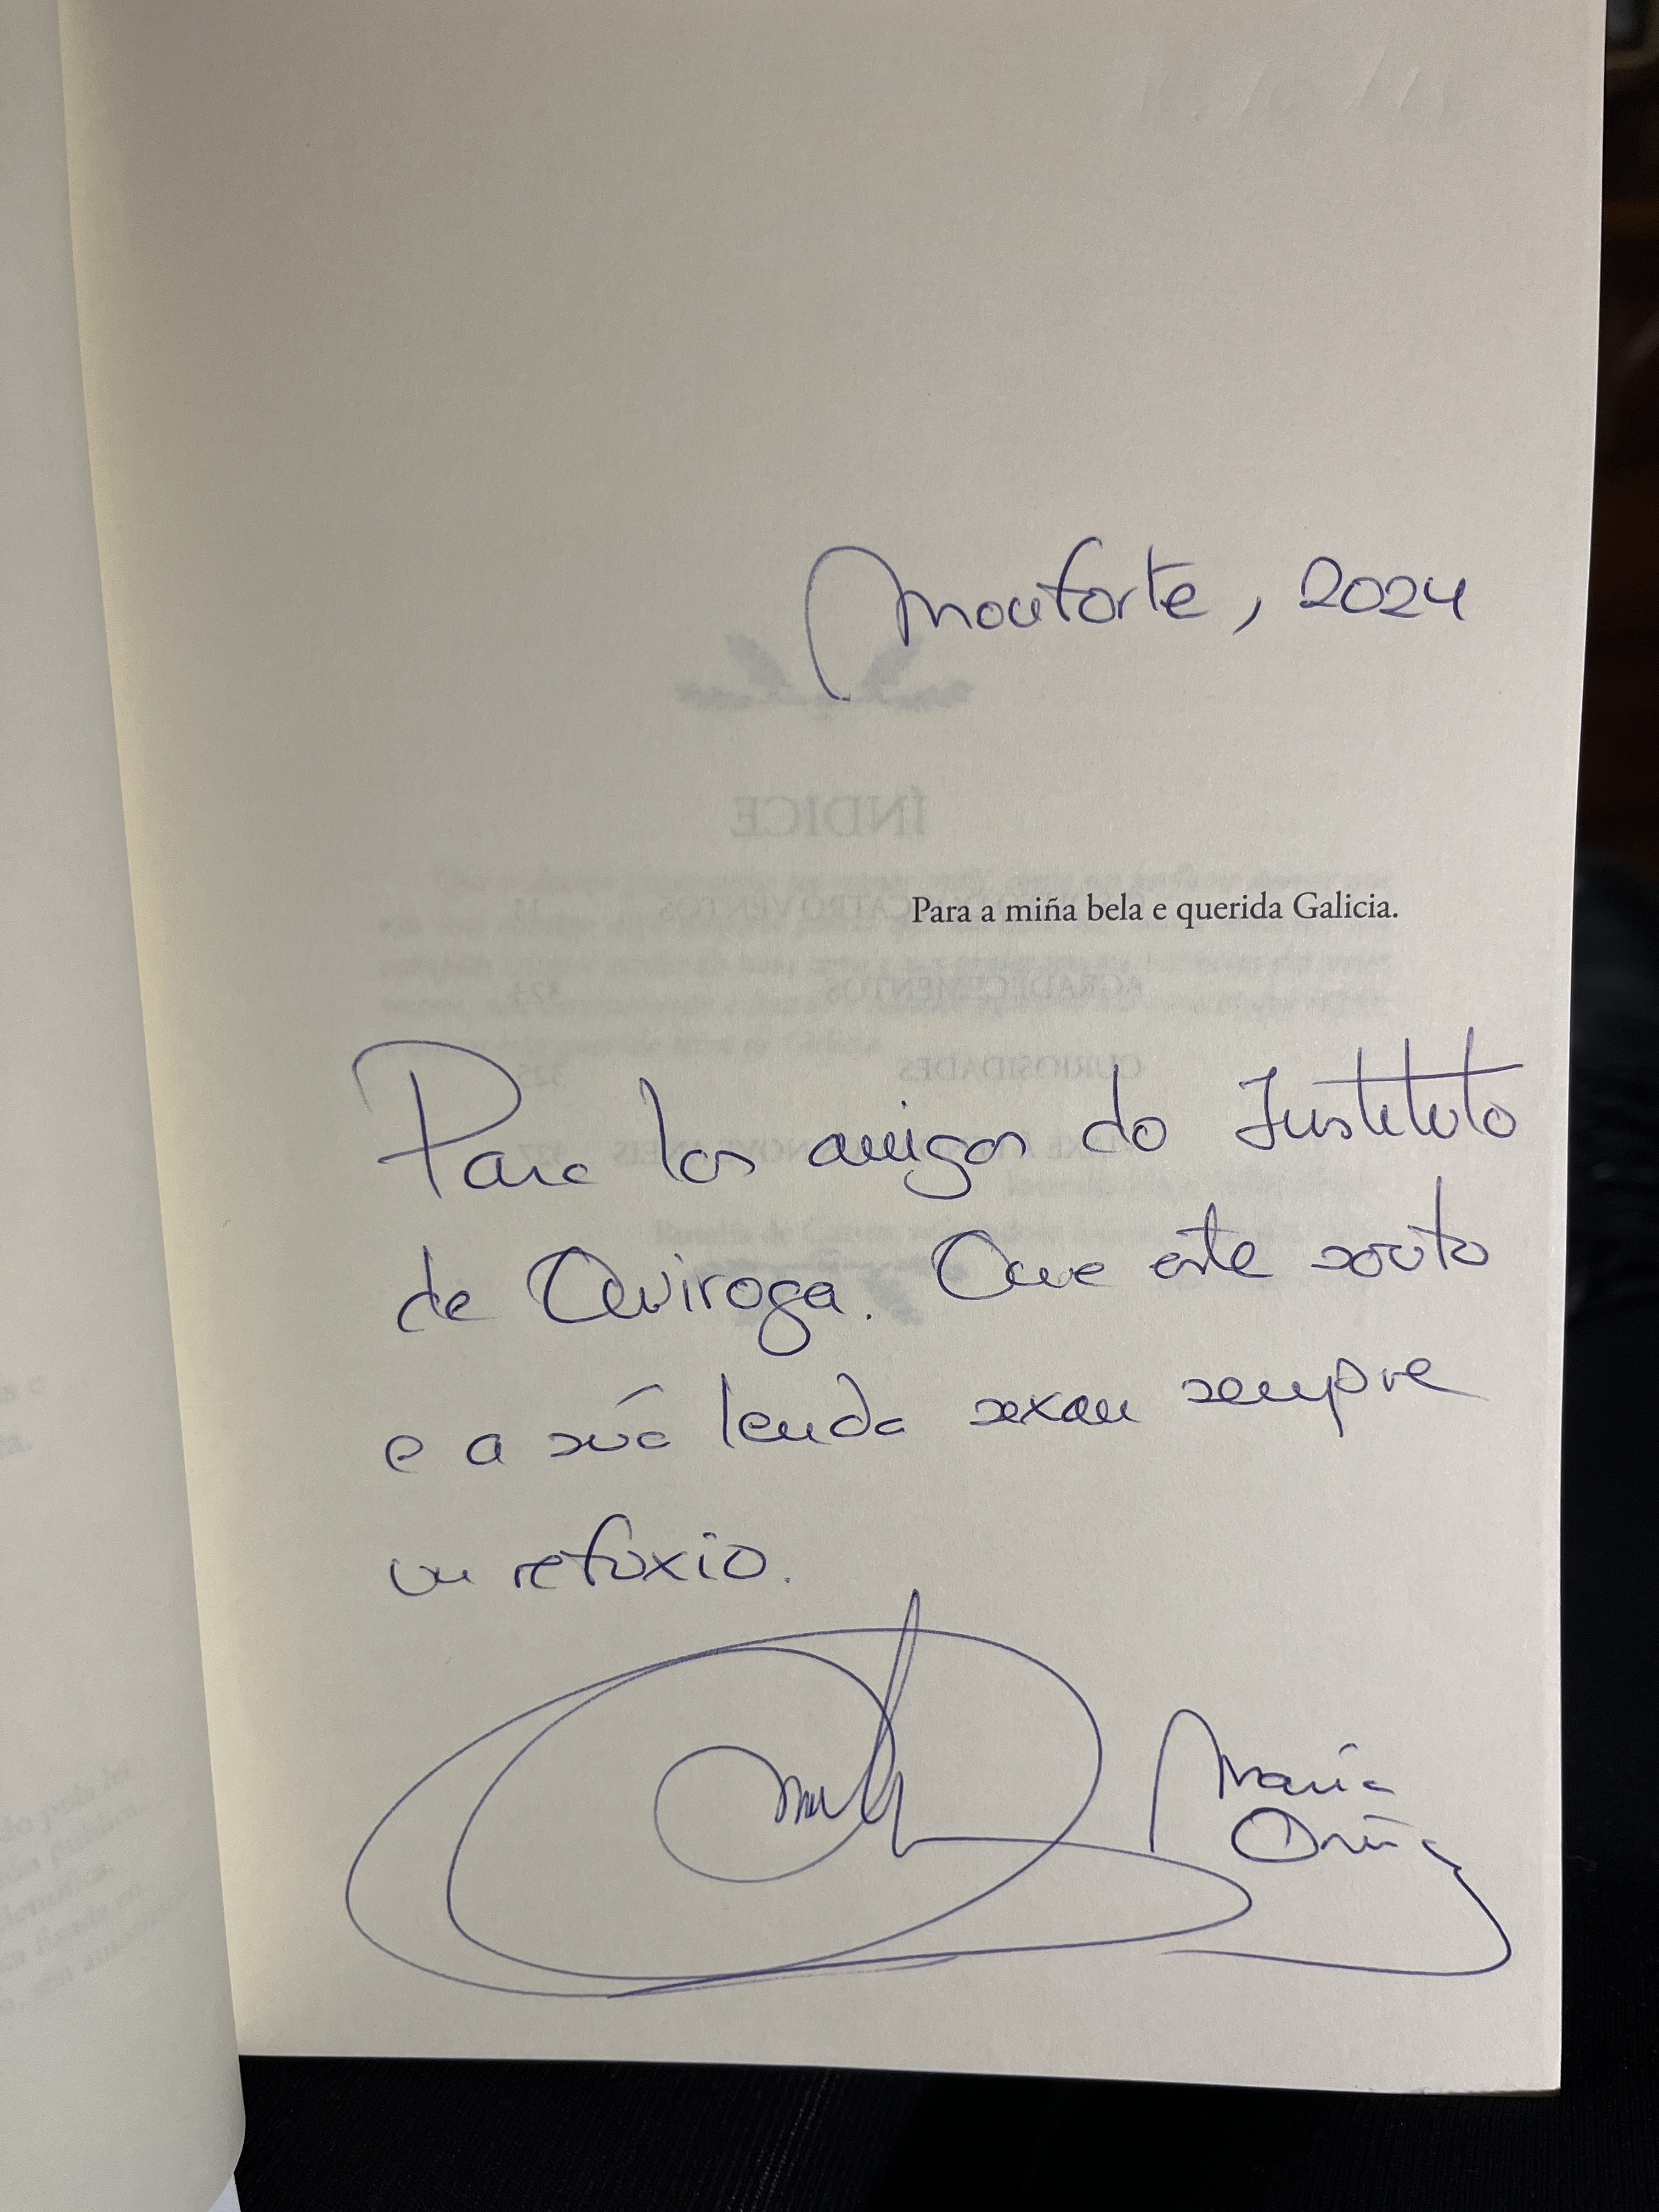 Monforte, 2024
ÍNDICE
Para a miña bela e querida Galicia.
AGRADECEMENTOS 323
CURIOSIDADES 325
Para los amigos do Instituto
de Quiroga. Que este souto
e a súa lenda sexan sempre
un refuxio.
María
Oruña